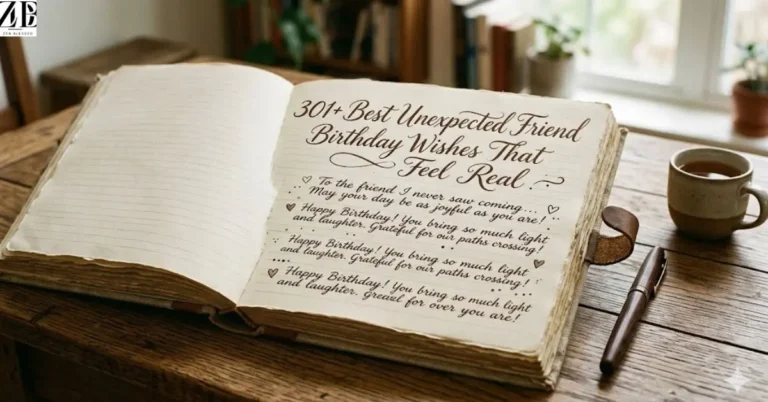 ZB
ZEN BLESSED
301+ Best Unexpected Friend
Birthday Wishes That
Feel Real
To the friend I never saw coming...
May your day be as joyful as you are!
Happy Birthday! You bring so much light
and laughter. Grateful for our paths crossing!
Happy Birthday! You bring so much light
and laughter. Grateful for our paths crossing!
Happy Birthday! You bring so much light
and laughter. Greiwel for over you are!